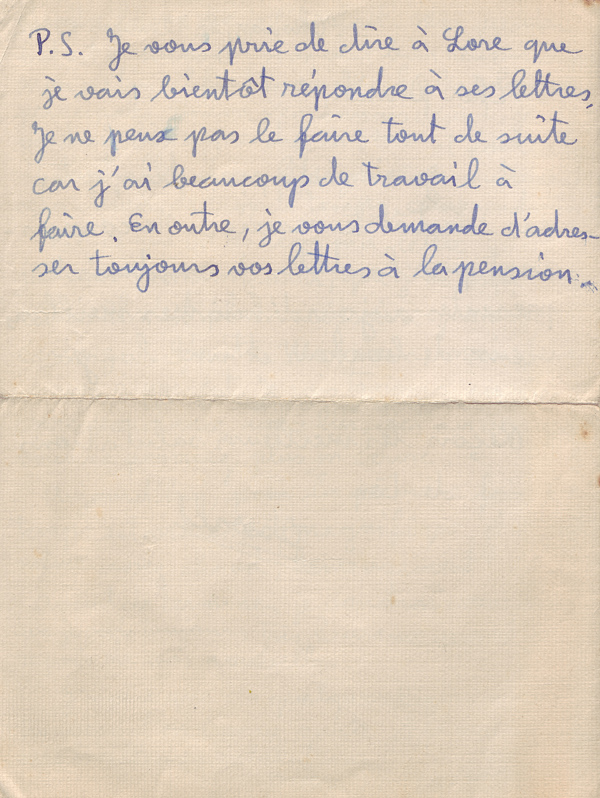 P.S. Je vous prie de dire à Lore que
je vais bientôt répondre à ses lettres.
Je ne peux pas le faire tout de suite
car j'ai beaucoup de travail à
faire. En outre, je vous demande d'adres-
ser toujours vos lettres à la pension.